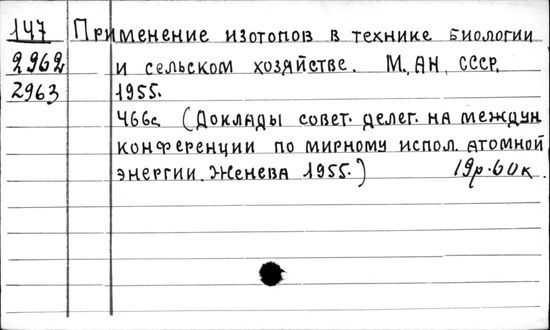 147 Применение изотопов в технике биологии
2962 и сельском хозяйстве. М., АН, СССР,
2963 1955.
466с (Доклады совет. делег. на междун
конференции по мирному испол. атомной
энергии. Женева 1955.) 19р.60к.